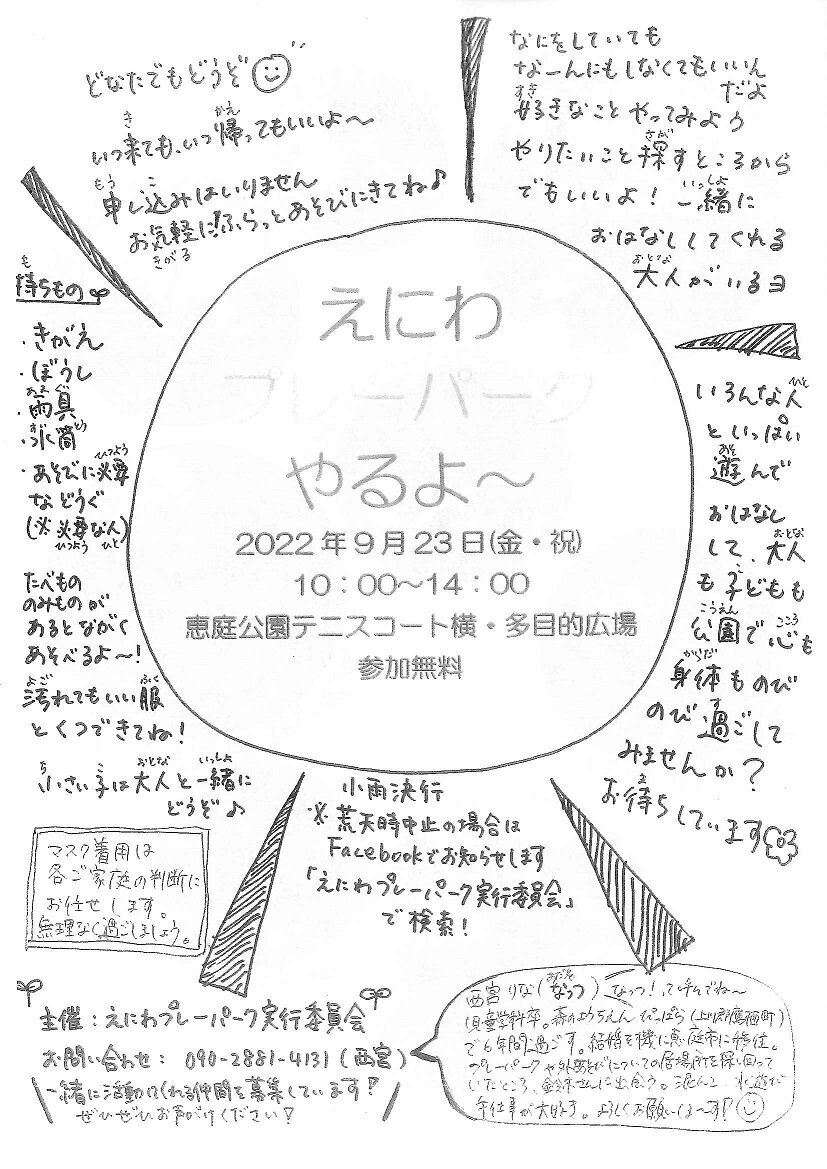 どなたでもどうぞ
いつ来ても、いつ帰ってもいいよ〜
申し込みはいりません
お気軽に!ふらっとあそびにきてね♪
なにをしていても
なーんにもしなくてもいいん
だよ
好きなことやってみよう
やりたいこと探すところから
でもいいよ！一緒に
おはなししてくれる
大人がいるヨ
持ちもの
・きがえ
・ぼうし
・雨具
・水筒
・あそびに必要
などうぐ
(※必要な人)
たべもの
のみものが
あるとながく
あそべるよ〜!
汚れてもいい服
とくつできてね!
小さい子は大人と一緒に
どうぞ♪
えにわ
プレーパーク
やるよ〜
2022年9月23日(金・祝)
10：00〜14：00
恵庭公園テニスコート横・多目的広場
参加無料
いろんな人
といっぱい
遊んで
おはなし
して、大人
も子どもも
公園で心も
身体ものび
のび過ごして
みませんか?
お待ちしています
小雨決行
※荒天時中止の場合は
Facebookでお知らせします
「えにわプレーパーク実行委員会」
で検索!
マスク着用は
各ご家庭の判断に
お任せします。
無理なく過ごしましょう。
主催：えにわプレーパーク実行委員会
お問い合わせ： 090-2881-4131 (西宮)
一緒に活動してくれる仲間を募集しています!
ぜひぜひお声がけください!
西宮りな(なっつ) なっつ!って呼んでね〜
児童学科卒。森のようちえん ぴっぱら(上川郡鷹栖町)
で6年間過ごす。結婚を機に恵庭市に移住。
プレーパークや外遊びについての居場所を探し回って
いたところ、さんに出会う。泥んこ 水遊び
手仕事が大好き。よろしくお願いしま〜す!